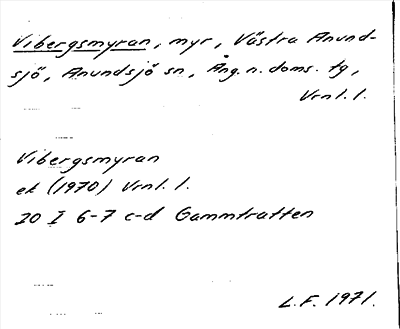 Vibergsmyran, myr, Västra Anund-
sjö, Anundsjö sn, Ång. n. doms. tg,
Vrnl. l.
Vibergsmyran
ek (1970) Vrnl. l.
20 I 6-7 c-d Gammtratten
L.F. 1971.